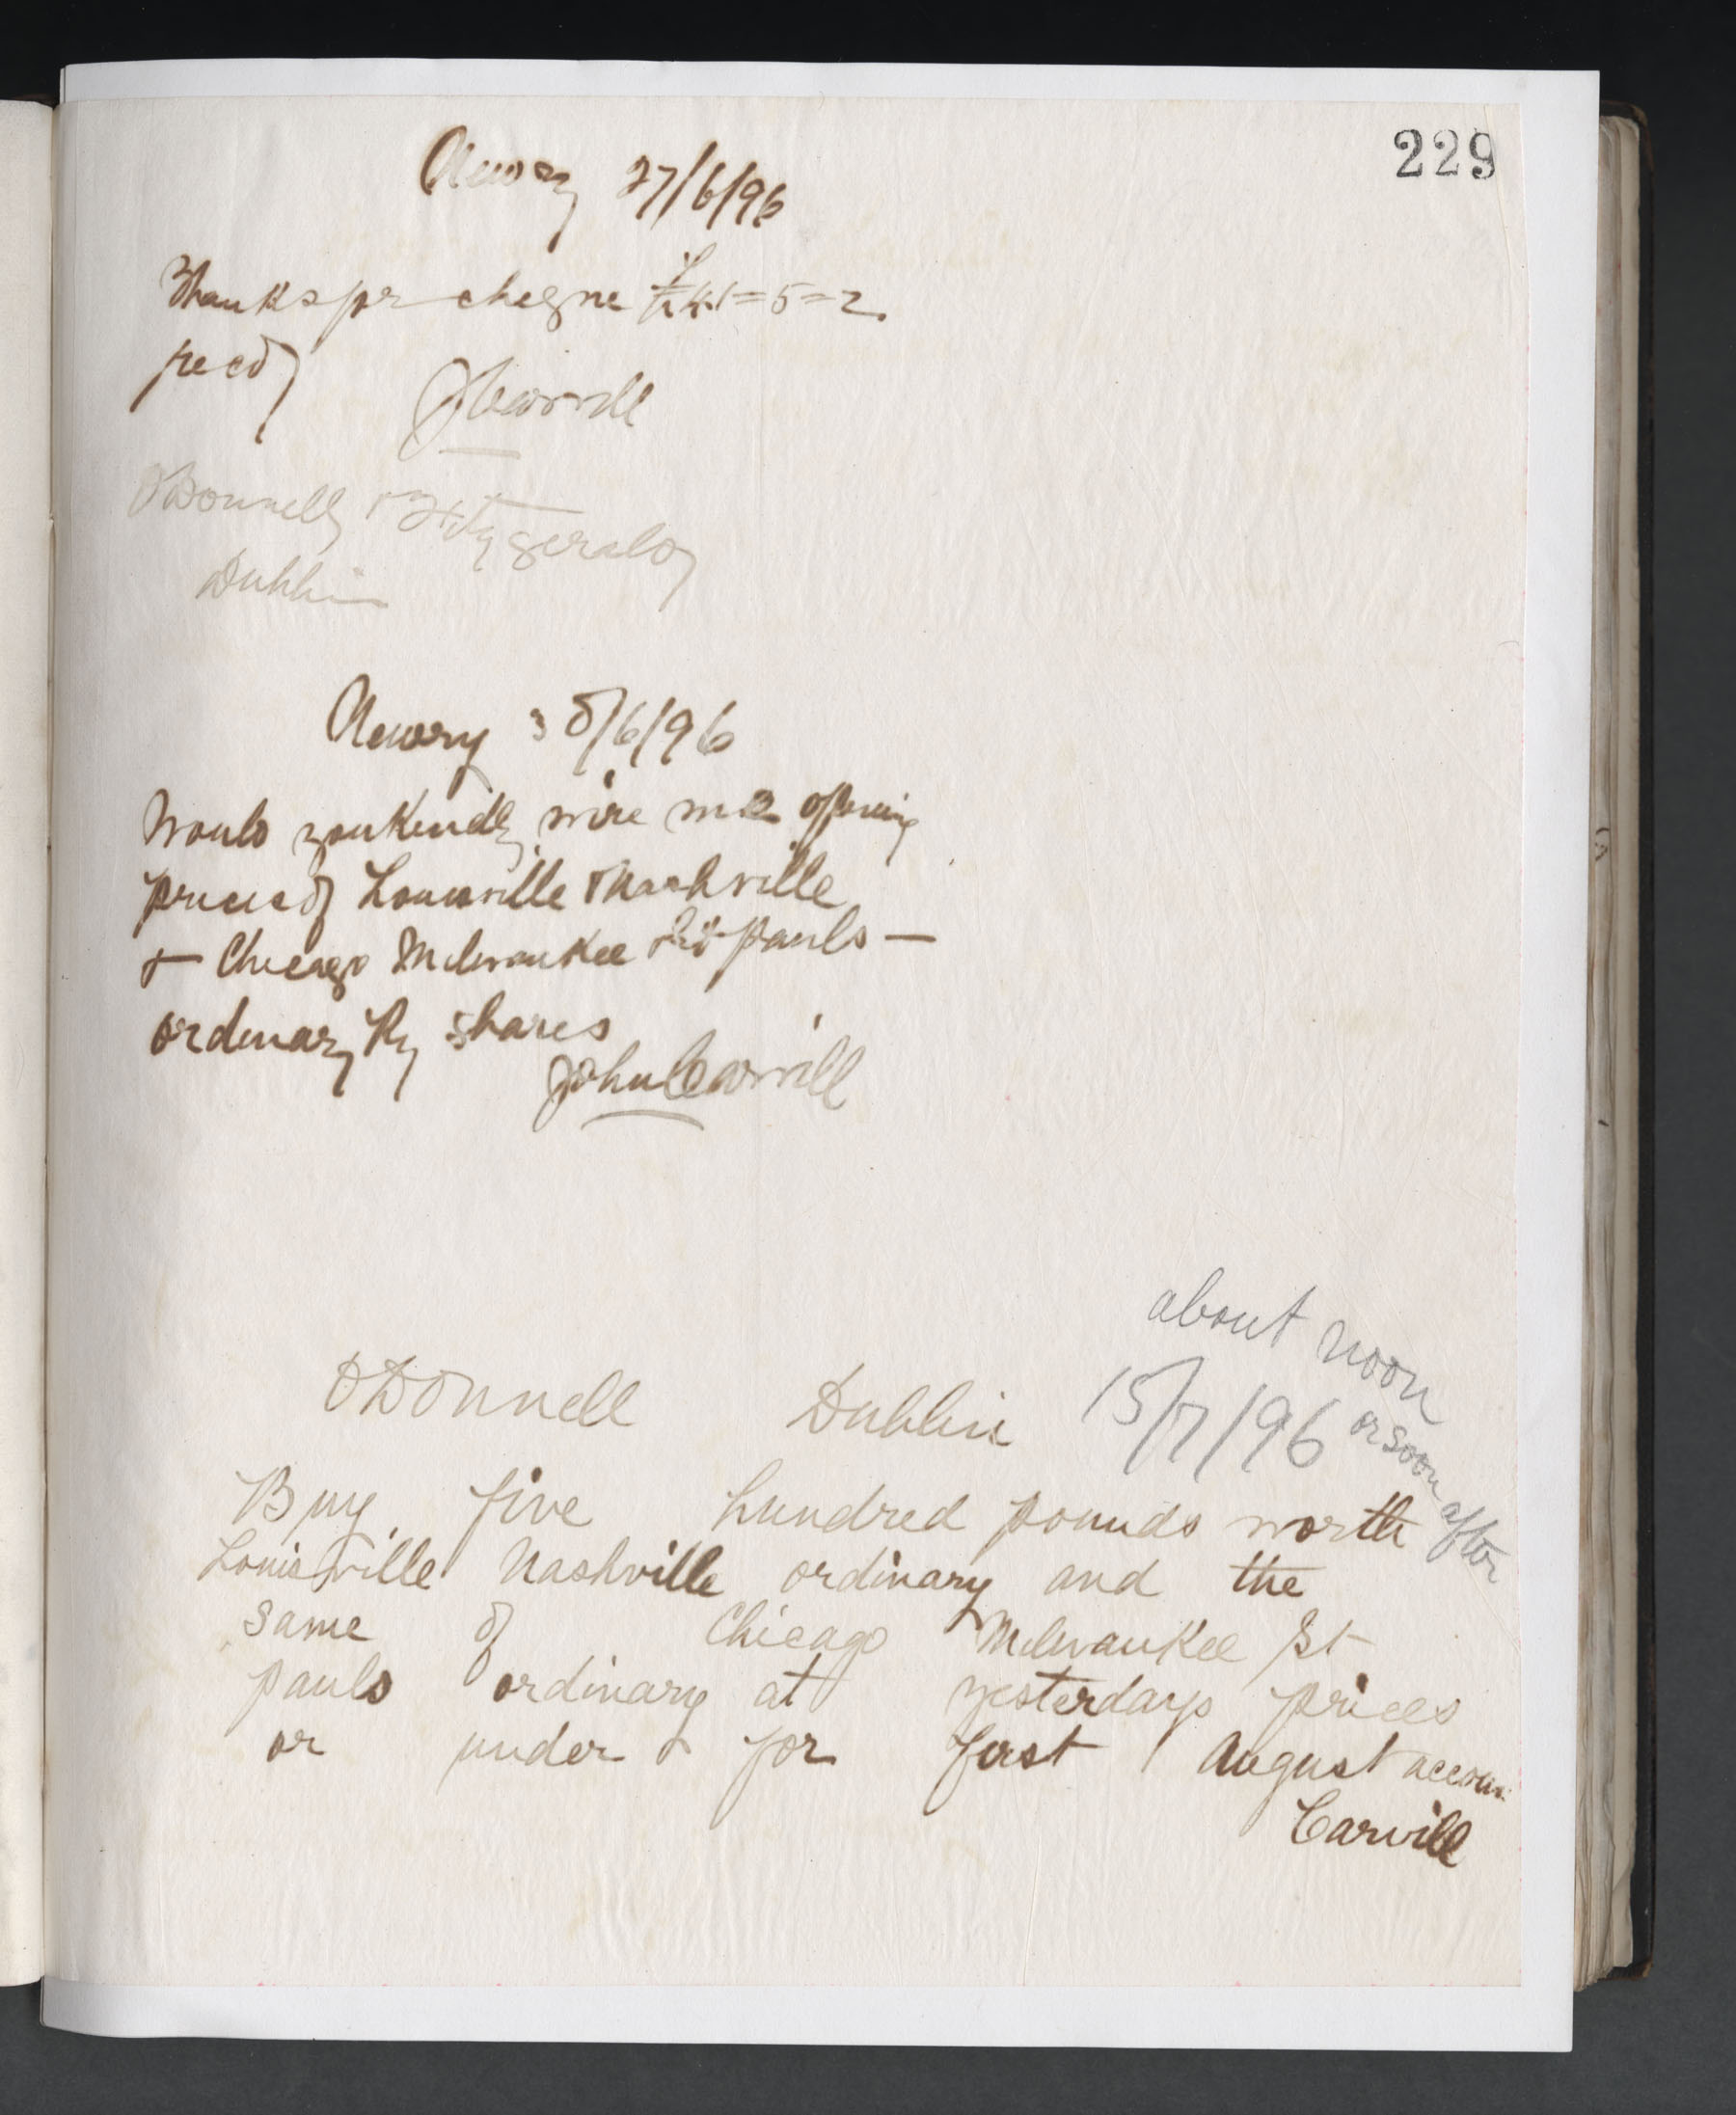 229
Newry 27/6/96
Thanks for cheque
recd
JCarvill
O'Donnell & Fitzgerald
Dublin
Newry 30/6/96
Would you kindly wire me opening
prices of Louisville & Nashville
& Chicago Milwaukee & St Pauls —
ordinary Ry shares
John Carvill
about noon
or soon after
O'Donnell Dublin 15/7/96
Buy five hundred pounds worth
Louisville Nashville ordinary and the
same of Chicago Milwaukee St
Pauls ordinary at yesterdays prices
or under & for first August accoun
Carvill